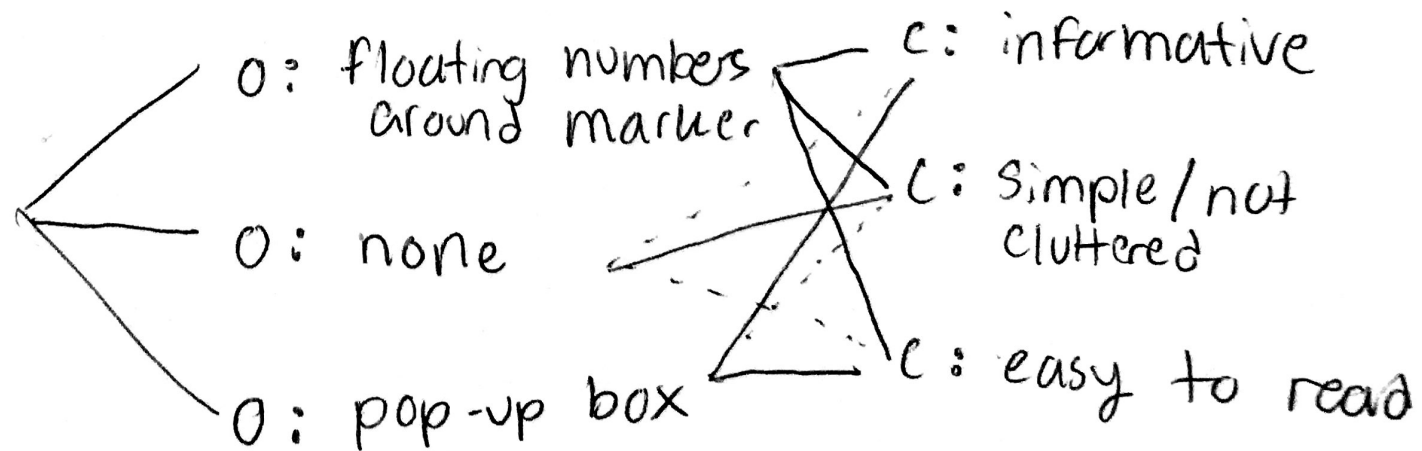 O: floating numbers
around marker
O: none
O: pop-up box
C: informative
C: simple/not
cluttered
C: easy to read